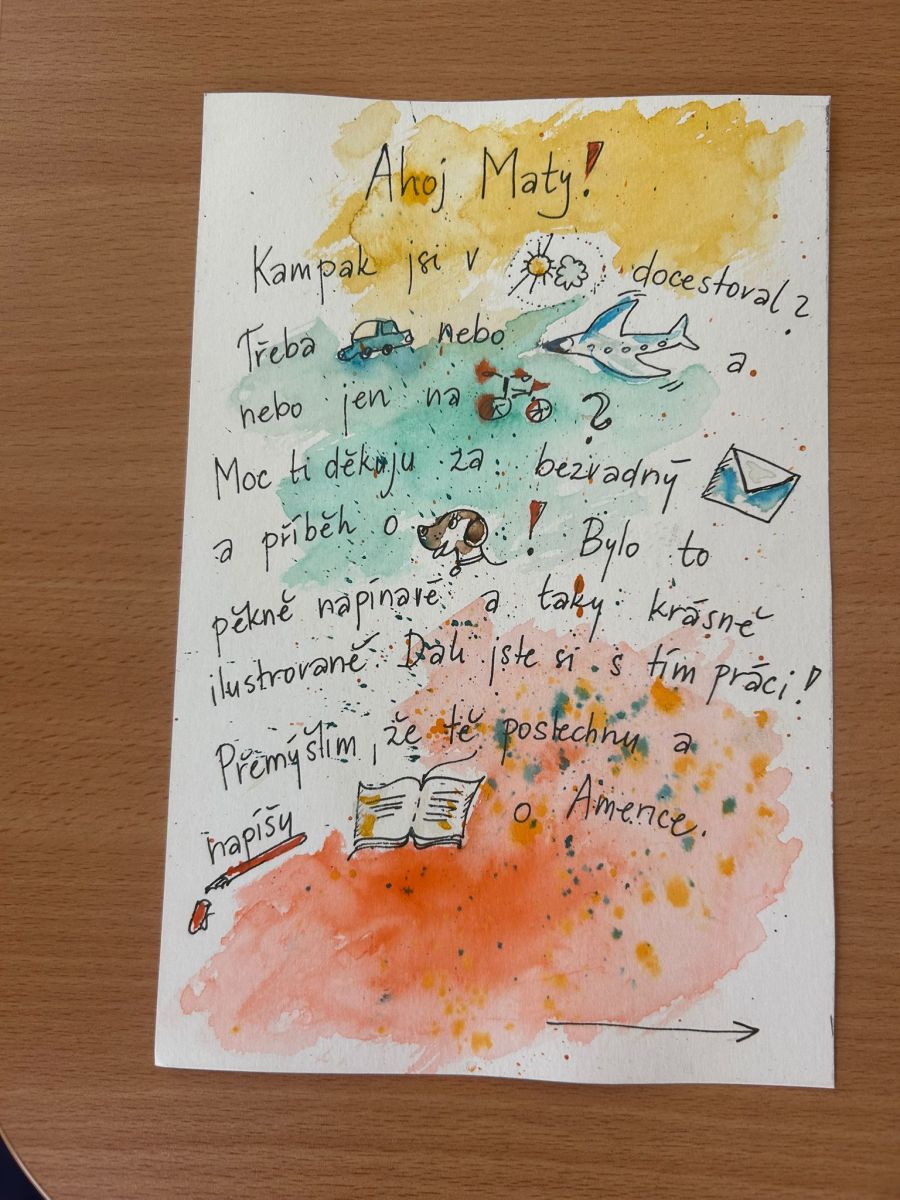 Ahoj Maty!
Kampak jsi v docestoval?
Třeba nebo a
nebo jen na ?
Moc ti děkuju za bezvadný
a příběh o !Bylo to
pěkně napínavé a taky krásně
ilustrované. Dali jste si s tím práci!
Přemýšlím, že tě poslechnu a
napíšu o Americe.